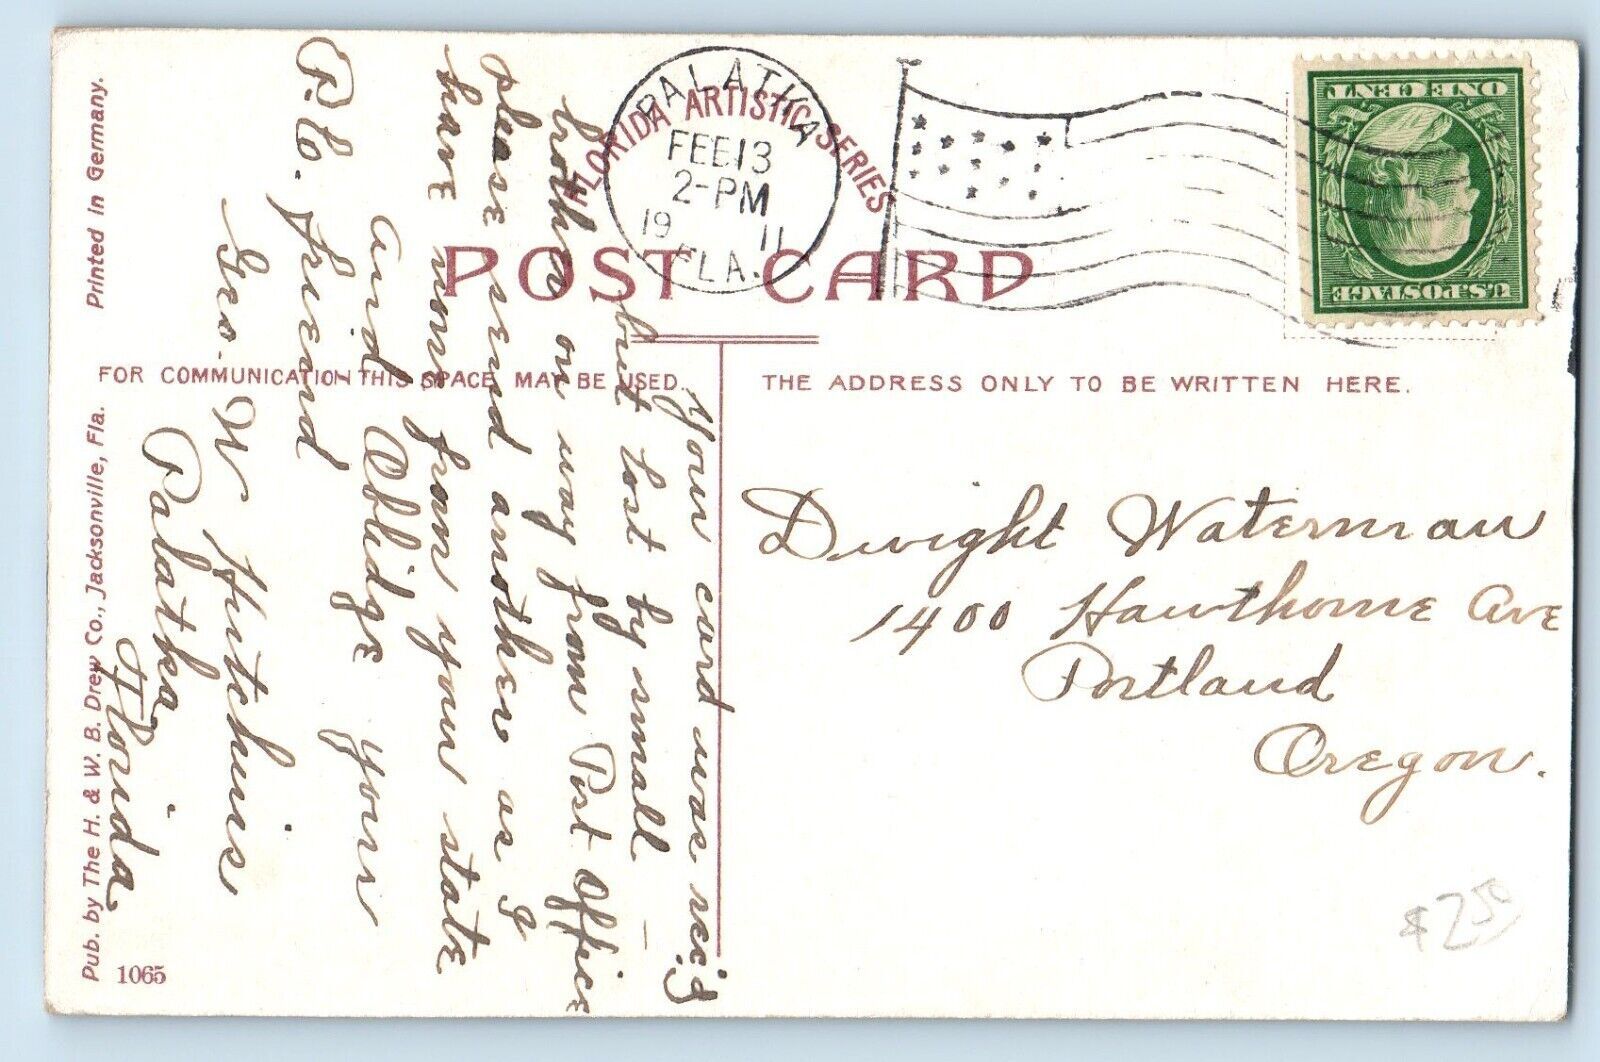 FLORIDA ARTISTIC SERIES
POST CARD
PALATKA
FEB 13
2-PM
1911
FLA.
U.S. POSTAGE
ONE CENT
FOR COMMUNICATION THIS SPACE MAY BE USED.
THE ADDRESS ONLY TO BE WRITTEN HERE.
Your card was rec'd
but lost by small
brother on way from Post Office
please send another as I
have none from your state
and Oblidge your
P.C. friend
Geo. W Hutchins
Palatka
Florida
Dwight Waterman
1400 Hawthorne Ave
Portland
Oregon.
$2.50
Printed in Germany.
Pub. by The H. & W. B. Drew Co., Jacksonville, Fla.
1065